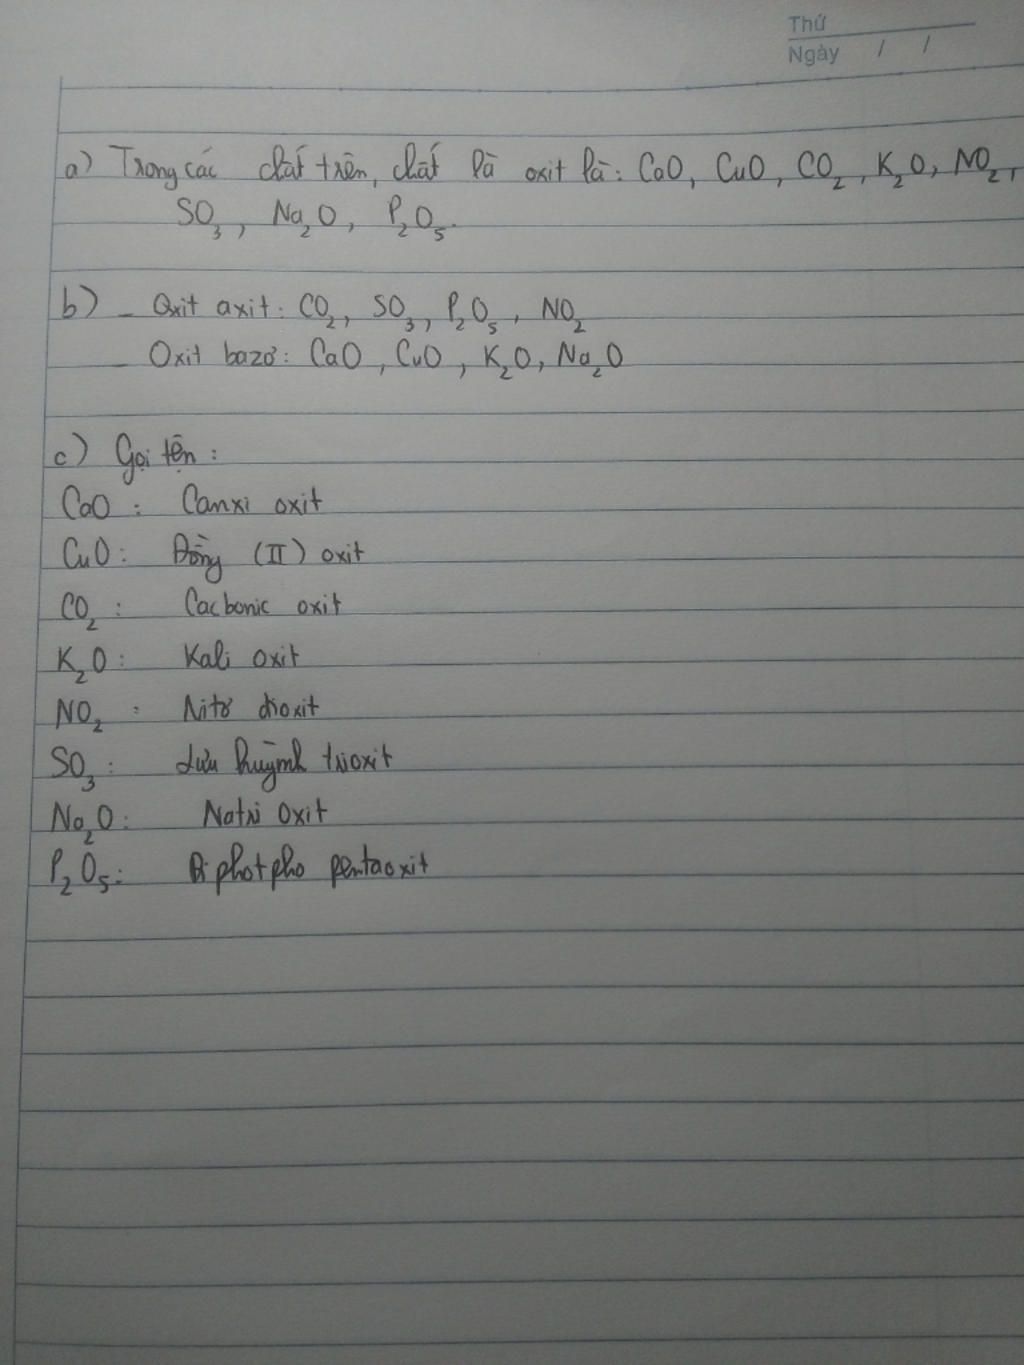 Thứ
Ngày / /
a) Trong các chất trên, chất là oxit là: CaO, CuO, CO₂, K₂O, NO₂,
SO₃, Na₂O, P₂O₅.
b) - Oxit axit: CO₂, SO₃, P₂O₅, NO₂
- Oxit bazơ: CaO, CuO, K₂O, Na₂O
c) Gọi tên:
CaO: Canxi oxit
CuO: Đồng (II) oxit
CO₂: Cacbonic oxit
K₂O: Kali oxit
NO₂: Nitơ đioxit
SO₃: Lưu huỳnh trioxit
Na₂O: Natri oxit
P₂O₅: Điphotpho pentaoxit